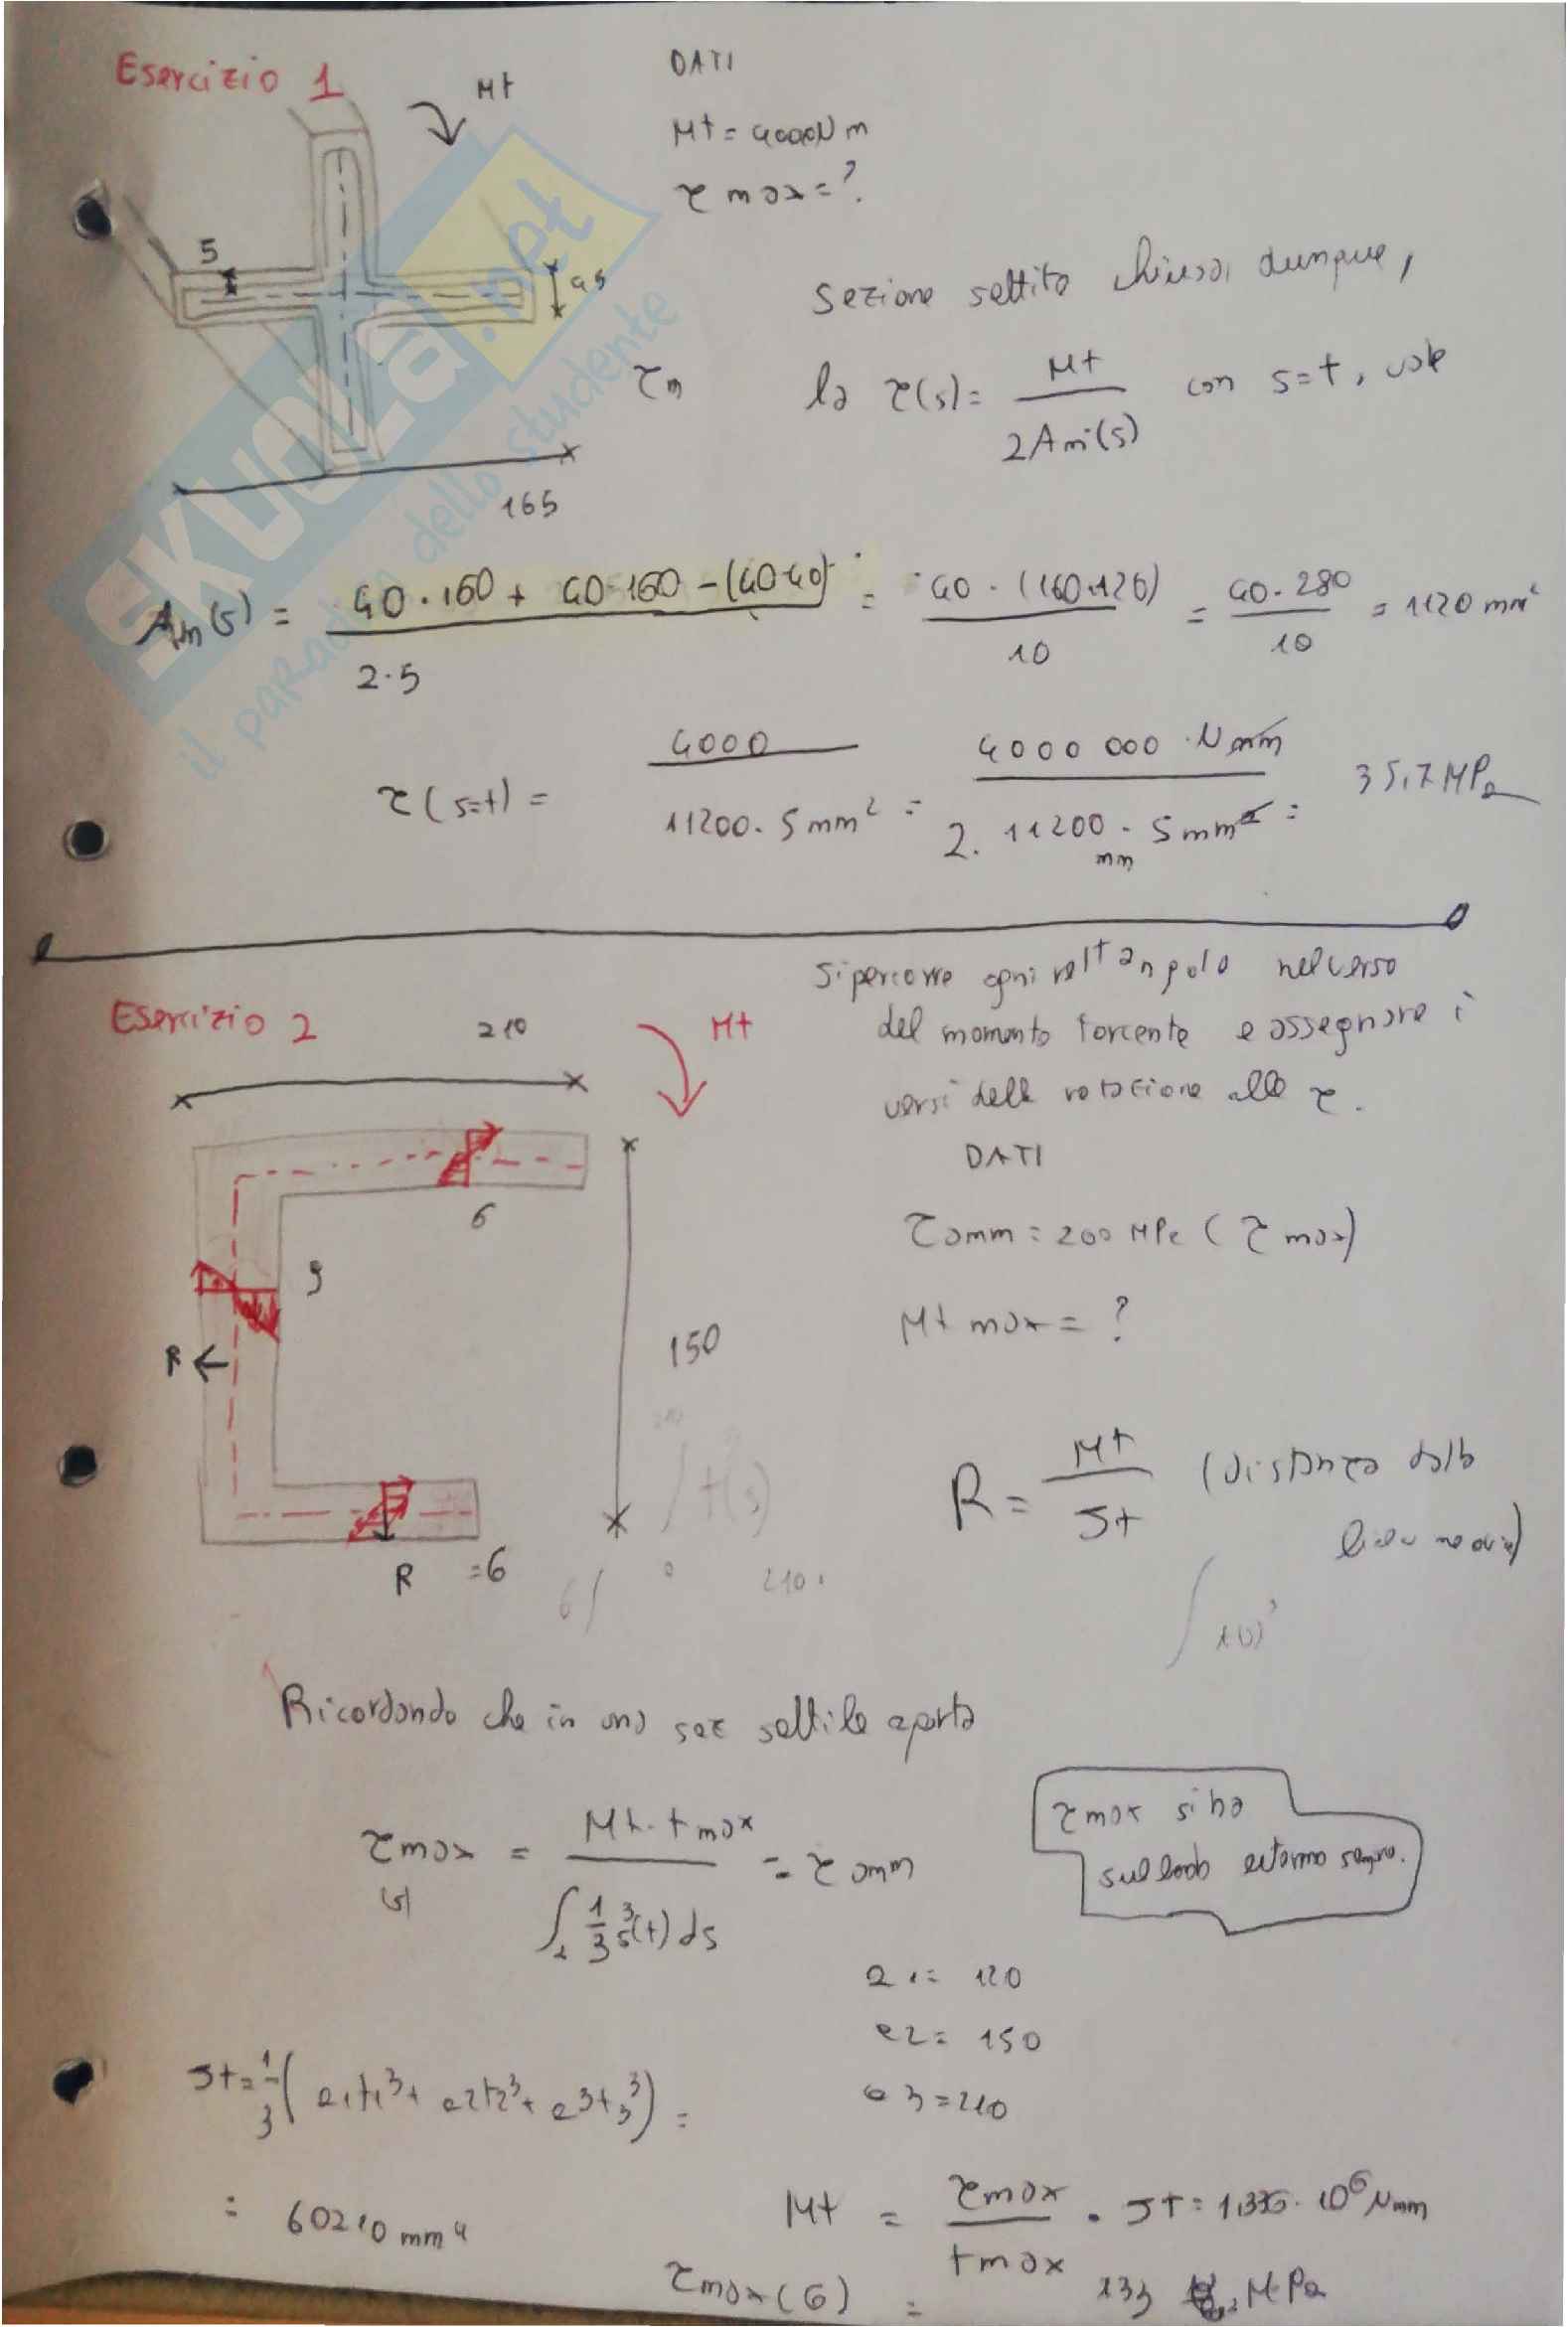 Esercizio 1
Mt
DATI
Mt = 4000 N m
τ max = ?
5
45
165
Sezione sottile chiusa, dunque,
τm
la τ(s) = Mt / 2Am(s) con s=t, vale
Am(s) = 40·160 + 40·160 - (40·40) / 2·5 = 40·(160+120) / 10 = 40·280 / 10 = 1120 mm²
τ(s=t) = 4000 / 11200·5 mm² = 4000 000 · N mm / 2·11200 mm · 5 mm² = 35,7 MPa
SKUOLA.net
il paradiso dello studente
Esercizio 2
210
Mt
Si percorre ogni rettangolo nel verso
del momento torcente e assegnare i
versi della rotazione alle τ.
DATI
6
τamm = 200 MPa (τ max)
9
Mt max = ?
R ←
150
R = Mt / Jt (distanza dalla
linea media)
R = 6
t(s)
210
Ricordando che in una sez sottile aperta
τmax (s) = Mt · t max / ∫ 1/3 s³(t) ds = τ amm
τ max si ha
sul lato esterno sempre.
a1 = 120
a2 = 150
a3 = 210
Jt = 1/3 ( a1t1³ + a2t2³ + a3t3³ ) =
= 60210 mm⁴
Mt = τmax / tmax · Jt = 1.336 · 10⁶ Nmm
τmax (6) = 133 MPa